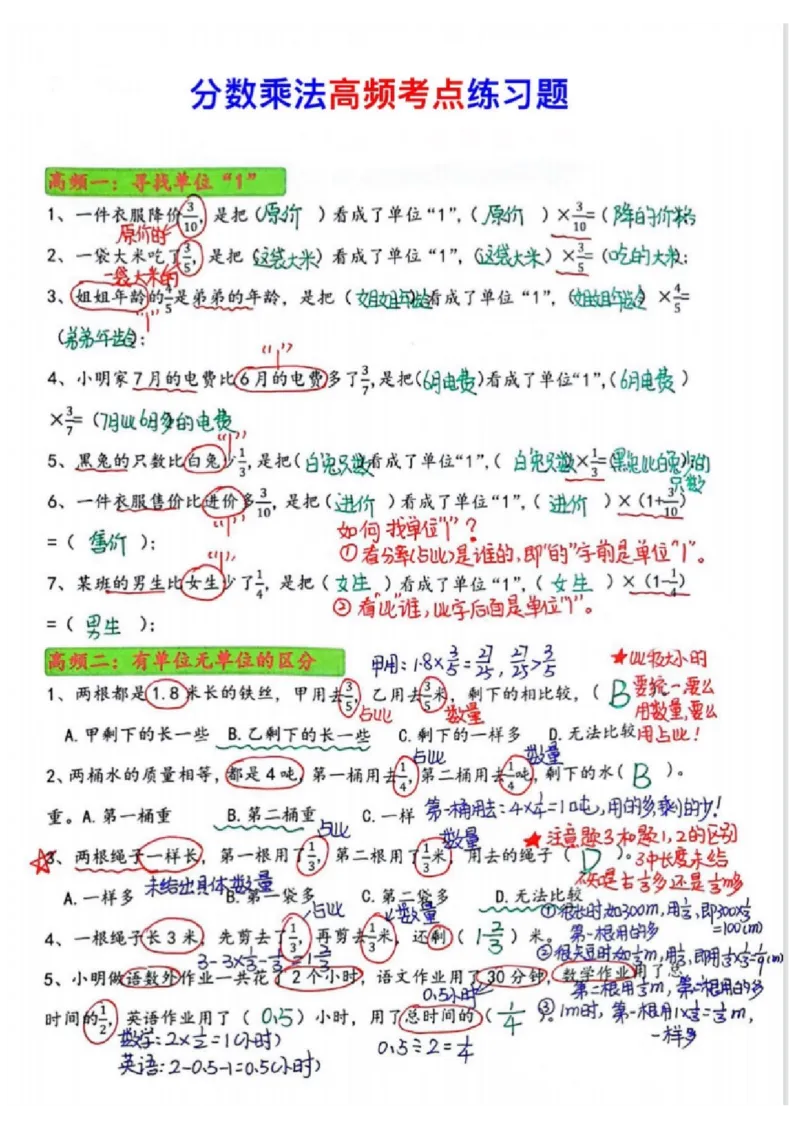 分数乘法高频考点练习题
高频一：寻找单位“1”
1、一件衣服降价3/10，是把（原价）看成了单位“1”，（原价）×3/10=（降的价格）
原价的
2、一袋大米吃了3/5，是把（这袋大米）看成了单位“1”，（这袋大米）×3/5=（吃的大米）；
一袋大米的
3、姐姐年龄的4/5是弟弟的年龄，是把（姐姐年龄）看成了单位“1”，（姐姐年龄）×4/5=
“1”
（弟弟年龄）；
“1”
4、小明家7月的电费比6月的电费多了3/7，是把（6月电费）看成了单位“1”，（6月电费）
×3/7=（7月比6月多的电费
“1”
5、黑兔的只数比白兔少1/3，是把（白兔只数）看成了单位“1”，（白兔只数）×1/3=（黑兔比白兔少的只数
6、一件衣服售价比进价多3/10，是把（进价）看成了单位“1”，（进价）×（1+3/10）
“1”
如何找单位“1”？
=（售价）；
①看分率（占比）是谁的，即“的”字前是单位“1”。
“1”
7、某班的男生比女生少了1/4，是把（女生）看成了单位“1”，（女生）×（1-1/4）
②看“比”谁，比字后面是单位“1”。
=（男生）；
高频二：有单位无单位的区分
甲用：1.8×3/5=27/25，27/25>3/5
★比较大小的
要统一要么
用数量，要么
用占比！
1、两根都是1.8米长的铁丝，甲用去3/5，乙用去3/5米，剩下的相比较，（B
占比 数量
A.甲剩下的长一些 B.乙剩下的长一些 C.剩下的一样多 D.无法比较
占比 数量
2、两桶水的质量相等，都是4吨，第一桶用去1/4，第二桶用去1/4吨，剩下的水（B）。
重。A.第一桶重 B.第二桶重 C.一样
第一桶用去：4×1/4=1吨，用的多剩的少！
占比 数量
★注意题3和题1,2的区别
3、两根绳子一样长，第一根用了1/3，第二根用了1/3米，用去的绳子（D）。
3中长度未给
未给出具体数量
A.一样多 B.第一袋多 C.第二袋多 D.无法比较
占比 数量
①很长时如300m，用1/3，即300×1/3=100(m)
第一根用的多
4、一根绳子长3米，先剪去了1/3，再剪去1/3米，还剩（1 2/3）米。
3-3×1/3-1/3=1 2/3
②很短时如1/3m，用1/3，即用1/3×1/3=1/9(m)
第二根用1/3m，第二根用的多
5、小明做语数外作业一共花了2个小时，语文作业用了30分钟，数学作业用了总
0.5小时
时间的1/2，英语作业用了（0.5）小时，用了总时间的（1/4）。
③1m时，第一根用1×1/3=1/3m，
一样多
数学：2×1/2=1(小时)
0.5÷2=1/4
英语：2-0.5-1=0.5(小时)